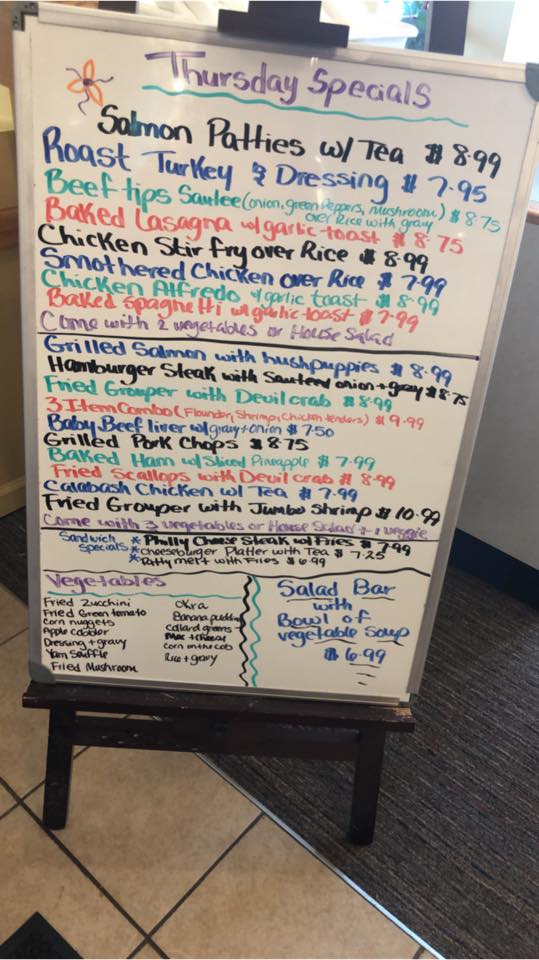 Thursday Specials
Salmon Patties w/ Tea $8.99
Roast Turkey & Dressing $7.95
Beef tips Sautee (onion, green Peppers, mushroom) $8.75
over Rice with gravy
Baked Lasagna w/garlic toast $8.75
Chicken Stir fry over Rice $8.99
Smothered Chicken over Rice $7.99
Chicken Alfredo w/garlic toast $8.99
Baked Spaghetti w/garlic toast $7.99
Come with 2 vegetables or House Salad
Grilled Salmon with hushpuppies $8.99
Hamburger Steak with Sauteed onion + gravy $8.75
Fried Grouper with Devil crab $8.99
3 Item Combo (Flounder, Shrimp, Chicken tenders) $9.99
Baby Beef liver w/gravy+onion $7.50
Grilled Pork Chops $8.75
Baked Ham w/ Sliced Pineapple $7.99
Fried Scallops with Devil crab $8.99
Calabash Chicken w/ Tea $7.99
Fried Grouper with Jumbo Shrimp $10.99
Come with 3 vegetables or House Salad + 1 veggie
Sandwich Specials
* Philly Cheese Steak w/ Fries $7.99
* cheeseburger Platter with Tea $7.25
* Patty melt with Fries $6.99
Vegetables
Fried Zucchini
Fried Green tomato
Corn nuggets
Apple cobbler
Dressing + gravy
Yam Souffle
Fried Mushroom
Okra
Banana pudding
Collard greens
Mac + cheese
Corn on the cob
Rice + gravy
Salad Bar
with
Bowl of
vegetable soup
$6.99